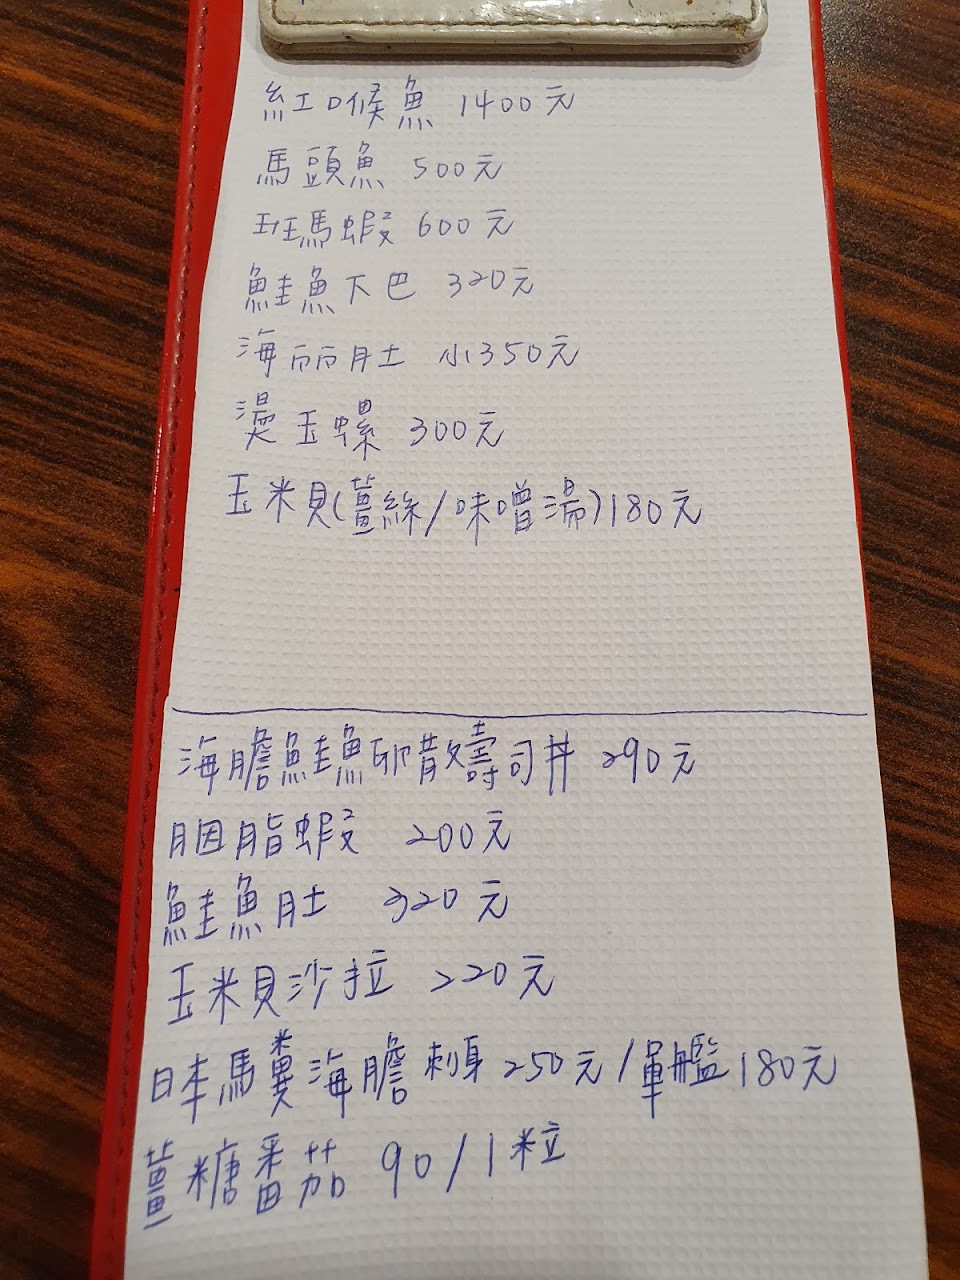 紅喉魚 1400元
馬頭魚 500元
斑馬蝦 600元
鮭魚下巴 320元
海丽肚 小350元
燙玉螺 300元
玉米貝(薑絲/味噌湯)180元
海膽鮭魚卵散壽司丼 290元
胭脂蝦 200元
鮭魚肚 320元
玉米貝沙拉 220元
日本馬糞海膽刺身250元/軍艦180元
薑糖番茄 90/1粒